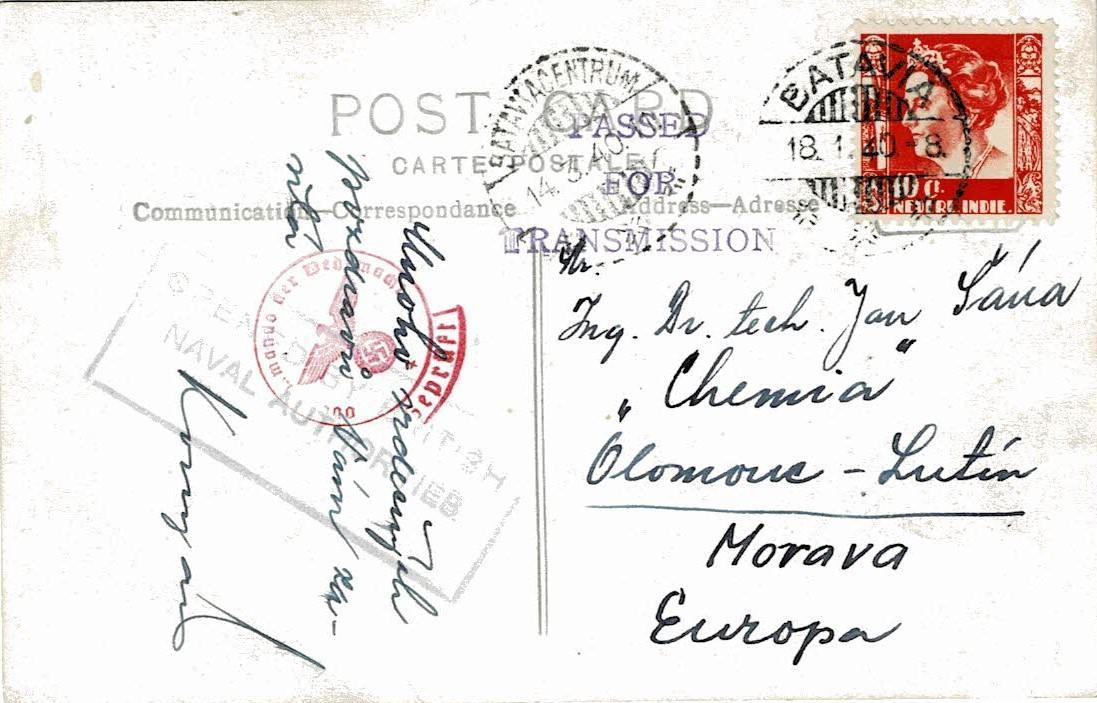 POST CARD
CARTE POSTALE
Communication—Correspondance
Address—Adresse
BATAVIACENTRUM
14.5.40
BATAVIA
18.1.40-8.
10 ct.
NEDERL. INDIE.
PASSED
FOR
TRANSMISSION
OPENED BY BRITISH
NAVAL AUTHORITIES
mando der Wehrmacht
Geprüft
Mnoho srdečných
pozdravů Vám za-
sílá
Ing. Dr. tech. Jan Šána
„Chemia"
Olomouc - Lutín
Morava
Europa